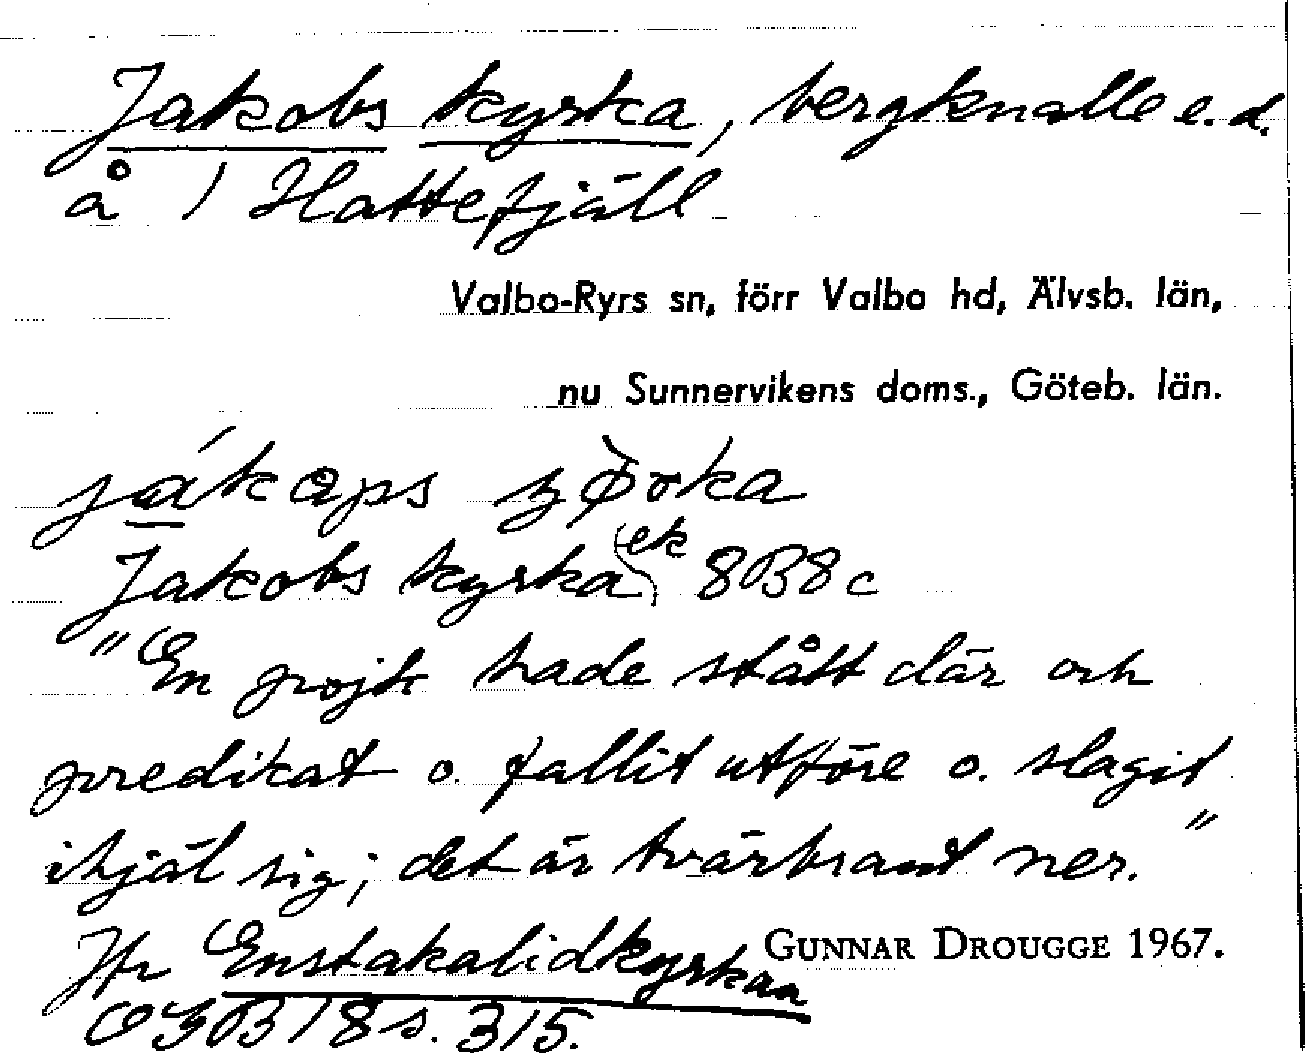 Jakobs kyrka, bergknalle e.d.
å 1 Hattefjäll
Valbo-Ryrs sn, förr Valbo hd, Älvsb. län,
nu Sunnervikens doms., Göteb. län.
Jakobs kyrka ek 8B8c
"En pojk hade stått där och
predikat o. fallit utföre o. slagit
ihjäl sig; det är tvärbrant ner."
Jfr Enstakalidkyrkan
GUNNAR DROUGGE 1967.
OGB 18 s. 315.